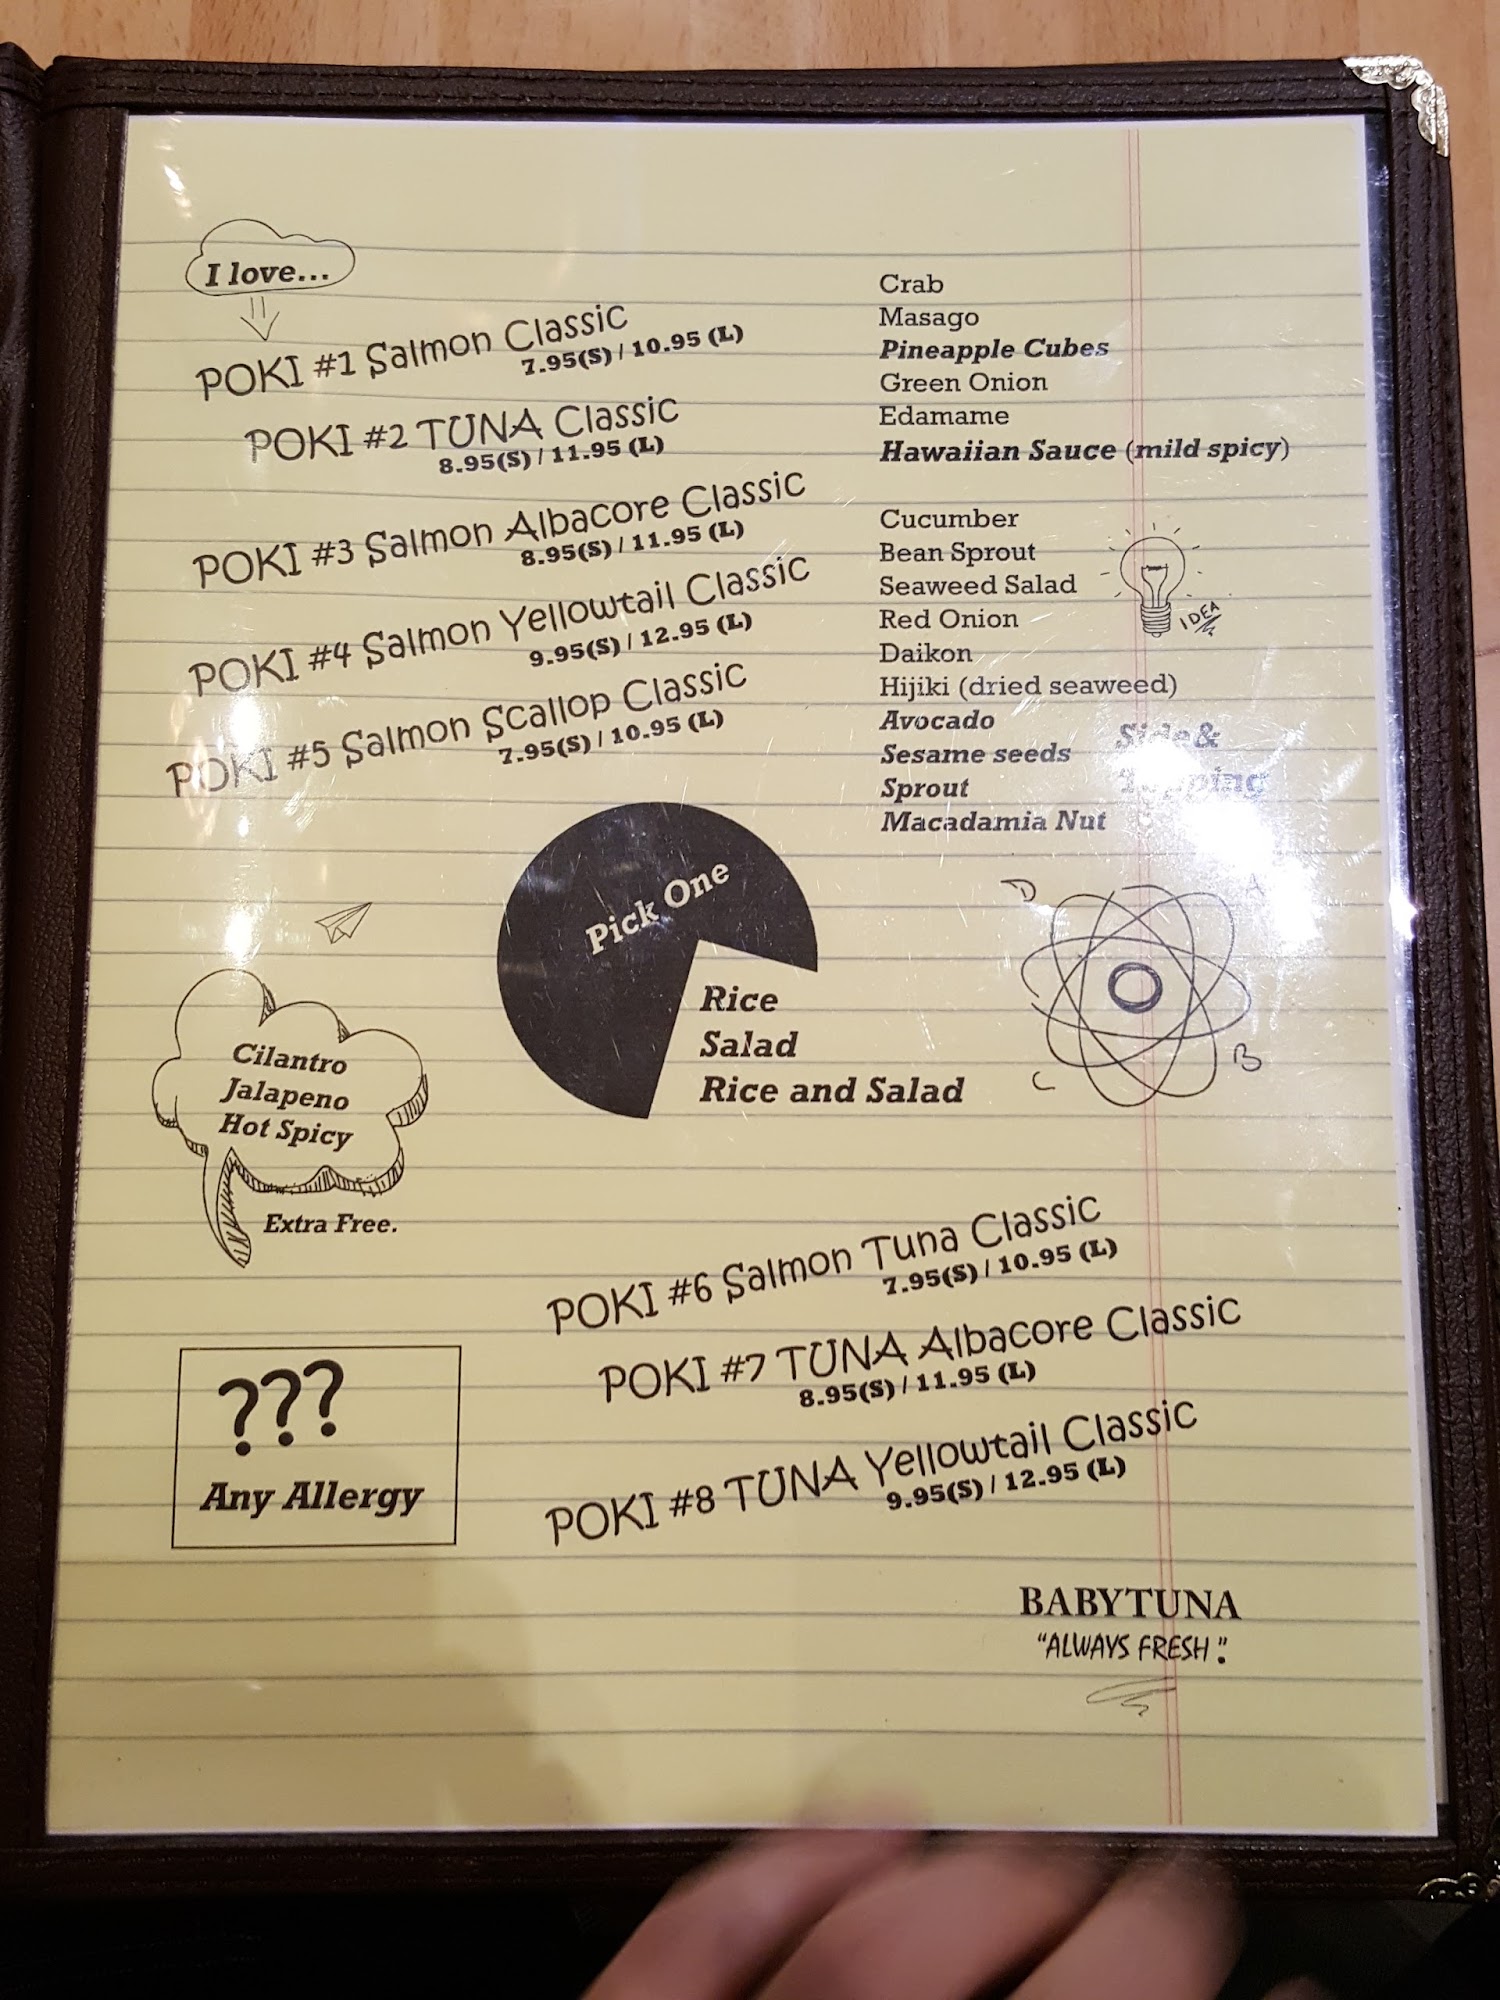 I love...
POKI #1 Salmon Classic
7.95(S) / 10.95 (L)
POKI #2 TUNA Classic
8.95(S) / 11.95 (L)
POKI #3 Salmon Albacore Classic
8.95(S) / 11.95 (L)
POKI #4 Salmon Yellowtail Classic
9.95(S) / 12.95 (L)
POKI #5 Salmon Scallop Classic
7.95(S) / 10.95 (L)
Crab
Masago
Pineapple Cubes
Green Onion
Edamame
Hawaiian Sauce (mild spicy)
Cucumber
Bean Sprout
Seaweed Salad
Red Onion
Daikon
Hijiki (dried seaweed)
Avocado
Sesame seeds
Sprout
Macadamia Nut
IDEA
Side&
Topping
Pick One
Rice
Salad
Rice and Salad
D
A
B
C
Cilantro
Jalapeno
Hot Spicy
Extra Free.
POKI #6 Salmon Tuna Classic
7.95(S) / 10.95 (L)
POKI #7 TUNA Albacore Classic
8.95(S) / 11.95 (L)
POKI #8 TUNA Yellowtail Classic
9.95(S) / 12.95 (L)
???
Any Allergy
BABYTUNA
"ALWAYS FRESH".